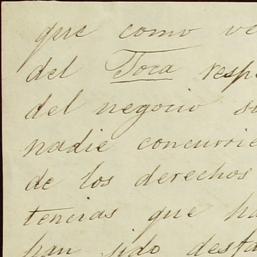 que como ve
del Toca resp
del negocio s
nadie concurrie
de los derechos
tencias que ha
han sido desfa